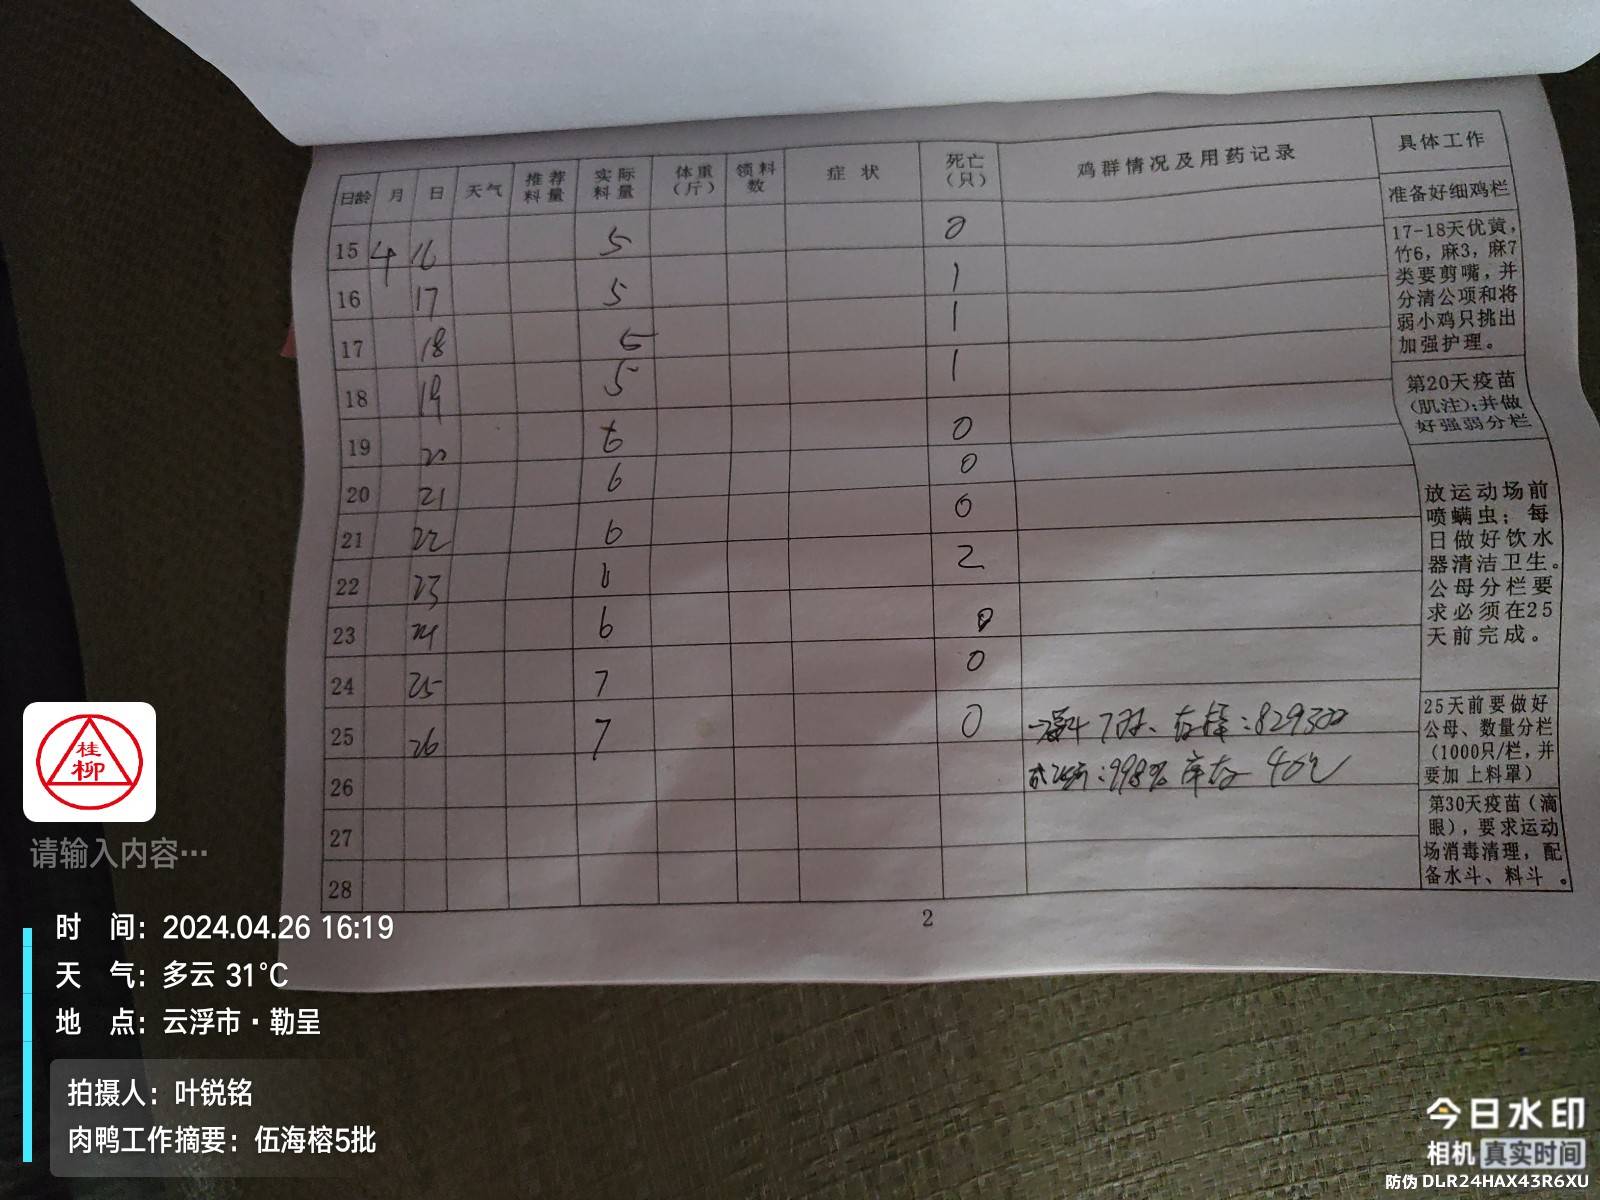 日龄 月 日 天气 推荐料量 实际料量 体重(斤) 领料数 症状 死亡(只) 鸡群情况及用药记录 具体工作
准备好细鸡栏
15 4 16 5 0
16 17 5 1
17 18 5 1
18 19 5 1
19 20 6 0
20 21 6 0
21 22 6 0
22 23 6 2
23 24 6 0
24 25 7 0
25 26 7 0
26
27
28
17-18天优黄,
竹6,麻3,麻7
类要剪嘴,并
分清公项和将
弱小鸡只挑出
加强护理。
第20天疫苗
(肌注);并做
好强弱分栏
放运动场前
喷螨虫;每
日做好饮水
器清洁卫生。
公母分栏要
求必须在25
天前完成。
25天前要做好
公母、数量分栏
(1000只/栏,并
要加上料罩)
第30天疫苗(滴
眼),要求运动
场消毒清理,配
备水斗、料斗。
2
桂
柳
请输入内容…
时 间:2024.04.26 16:19
天 气:多云 31°C
地 点:云浮市·勒呈
拍摄人:叶锐铭
肉鸭工作摘要:伍海榕5批
今日水印
相机 真实时间
防伪 DLR24HAX43R6XU